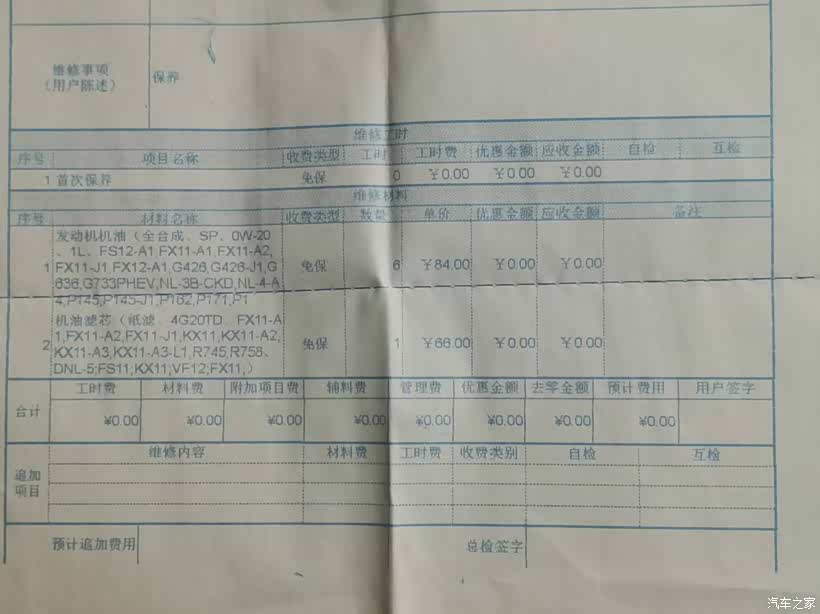 维修事项
（用户陈述）
保养
维修工时
序号 项目名称 收费类型 工时 工时费 优惠金额 应收金额 自检 互检
1 首次保养 免保 0 ￥0.00 ￥0.00 ￥0.00
维修材料
序号 材料名称 收费类型 数量 单价 优惠金额 应收金额 备注
发动机机油（全合成、SP、0W-20
、1L、FS12-A1,FX11-A1,FX11-A2,
1 FX11-J1,FX12-A1,G426,G426-J1,G 免保 6 ￥84.00 ￥0.00 ￥0.00
636,G733PHEV,NL-3B-CKD,NL-4-A
4,P145,P145-J1,P162,P171,P1
机油滤芯（纸滤、4G20TD、FX11-A
1,FX11-A2,FX11-J1,KX11,KX11-A2,
2 KX11-A3,KX11-A3-L1,R745,R758、 免保 1 ￥66.00 ￥0.00 ￥0.00
DNL-5;FS11,KX11,VF12,FX11,）
合计 工时费 材料费 附加项目费 辅料费 管理费 优惠金额 去零金额 预计费用 用户签字
¥0.00 ¥0.00 ¥0.00 ¥0.00 ¥0.00 ¥0.00 ¥0.00 ¥0.00
追加
项目
维修内容 材料费 工时费 收费类别 自检 互检
预计追加费用 总检签字
汽车之家